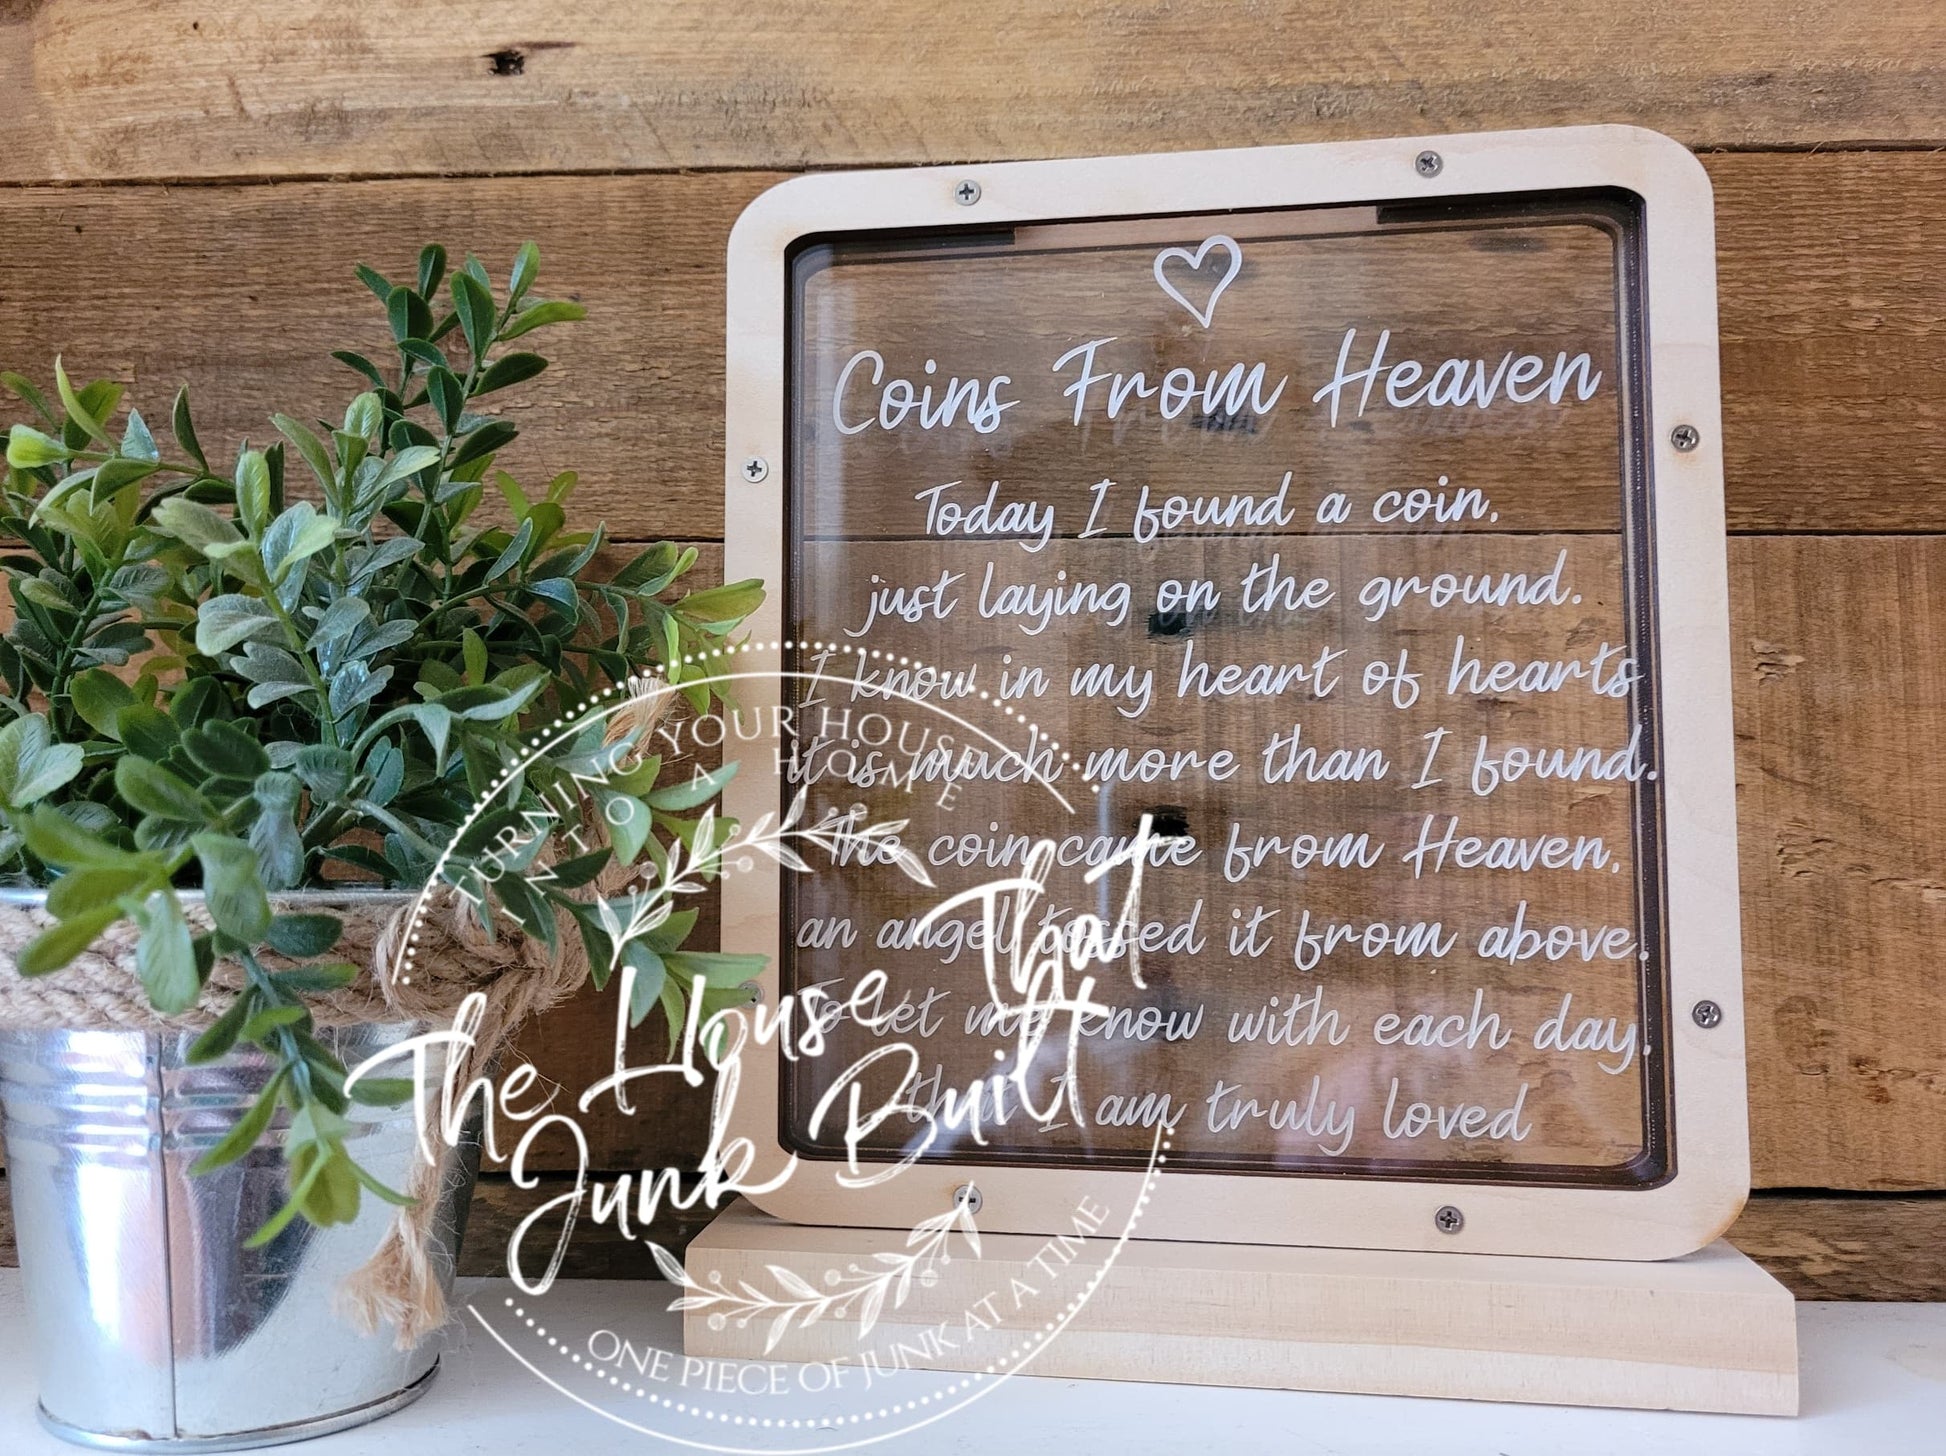 Coins From Heaven
Today I found a coin,
just laying on the ground.
I know in my heart of hearts
it is much more than I found.
The coin came from Heaven,
an angel tossed it from above.
To let me know with each day,
that I am truly loved
TURNING YOUR HOUSE
INTO A HOME
The House That
Junk Built
ONE PIECE OF JUNK AT A TIME